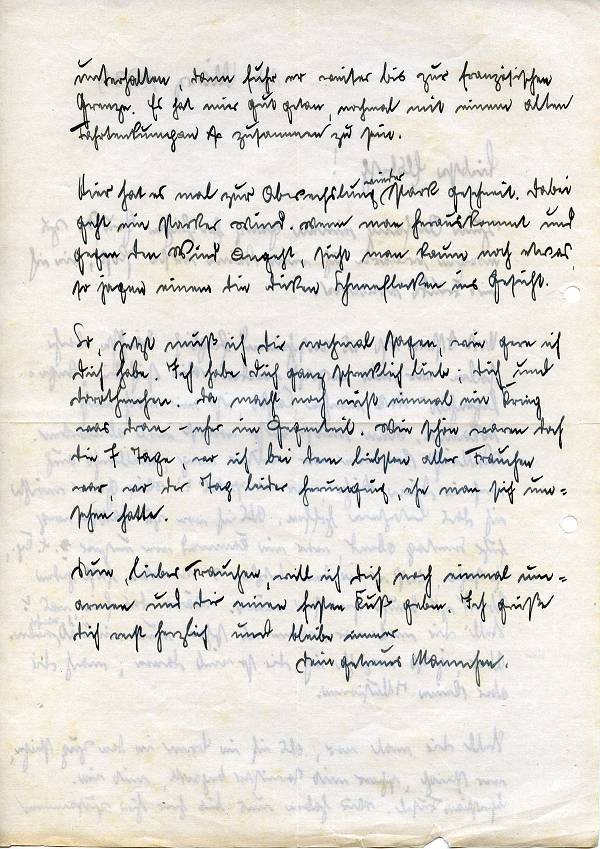 unterhalten, dann fuhr er weiter bis zur französischen
Grenze. Es hat mir gut getan, nochmal mit einem alten
Fahrtenkumpan zusammen zu sein.
Hier hat es mal zur Abwechslung wieder stark geschneit. Dabei
geht ein starker Wind. Wenn man herauskommt und
gegen den Wind angeht, sieht man kaum noch etwas,
so jagen einem die dicken Schneeflocken ins Gesicht.
So, jetzt muß ich dir nochmal sagen, wie gern ich
dich habe. Ich habe dich ganz schrecklich lieb; dich und
Dorothinchen. Da macht noch nicht einmal ein Krieg
was dran – eher im Gegenteil. Wie schön waren doch
die 7 Tage, wo ich bei dem liebsten aller Frauchen
war, wo der Tag leider herumging, ehe man sich um=
sehen hatte.
Nun, liebes Frauchen, will ich dich noch einmal um=
armen und dir einen festen Kuß geben. Ich grüße
dich recht herzlich und bleibe immer
dein getreues Männchen.